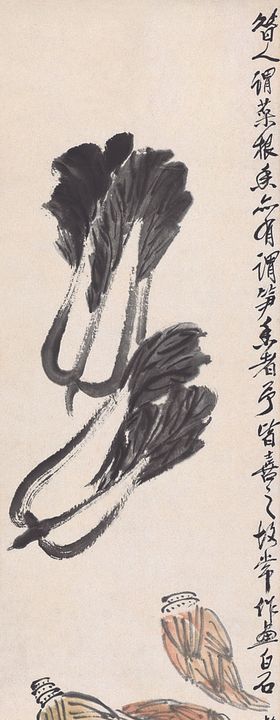 昔人谓菜根香亦有谓笋香者予皆喜之故常作画白石